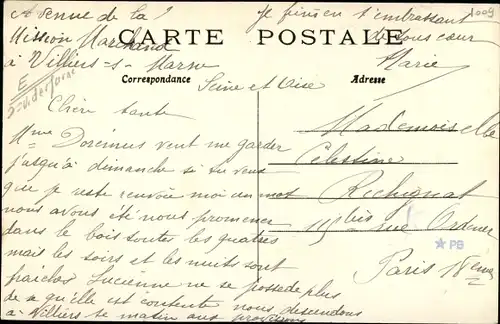 Avenue de la
Mission Marchand
à Villiers-s-Marne
Seine et Oise
Je finis en t'embrassant
de tous cœur
Marie
1009
CARTE POSTALE
Correspondance
Adresse
E
Chère tante
Mme Doremus veut me garder
jusqu'à dimanche si tu veux
que je reste renvoie moi un mot
nous avons été nous promener
dans le bois toutes les quatres
mais les soirs et les nuits sont
fraiches Lucienne ne se possède plus
de qu'elle est contente nous descendons
à Villiers le matin aux provisions
Mademoiselle
Celestine
Rechignat
115 bis rue Ordener
Paris 18eme
PB